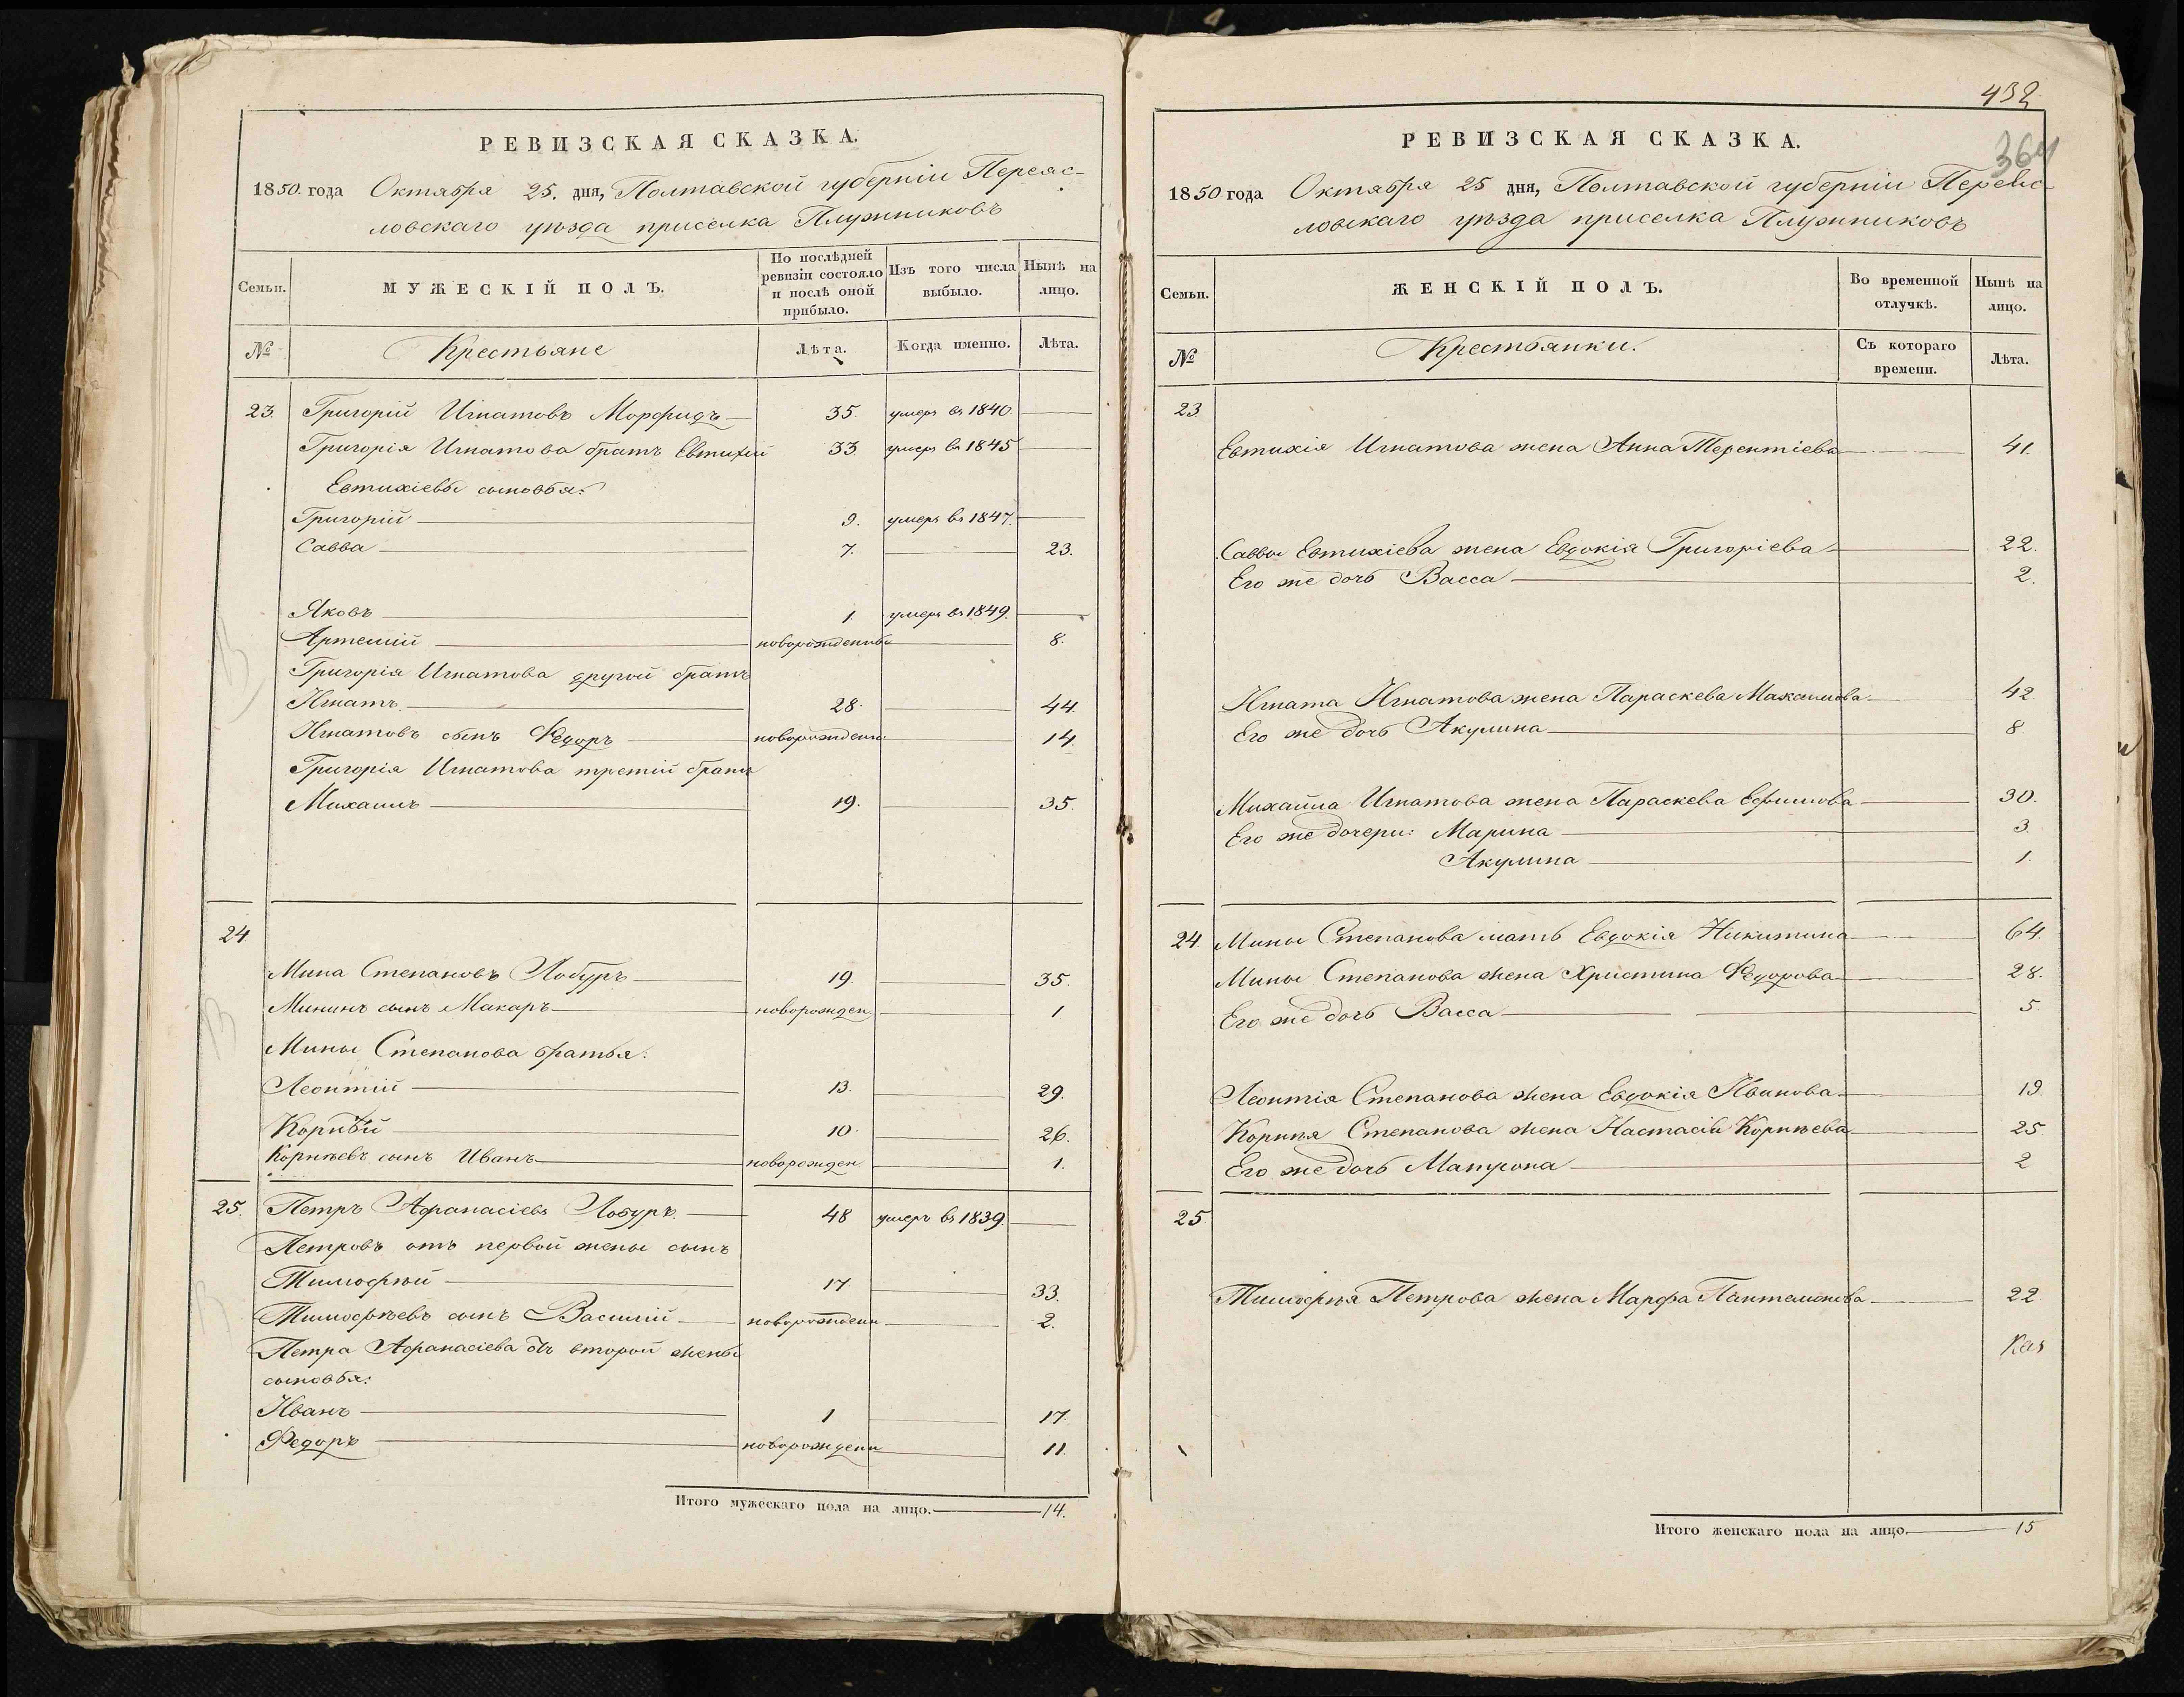 РЕВИЗСКАЯ СКАЗКА.
1850 года Октября 25. дня, Полтавской губерніи Переяс-
ловскаго уѣзда приселка Плужниковъ
Семьи.
МУЖЕСКІЙ ПОЛЪ.
По послѣдней ревизіи состояло и послѣ оной прибыло.
Изъ того числа выбыло.
Нынѣ на лицо.
№ Крестьяне Лѣта. Когда именно. Лѣта.
23. Григорій Игнатовъ 35. умеръ въ 1840
Григорія Игнатова братъ Евтихій 33 умеръ въ 1845
Евтихіевы сыновья:
Григорій 9. умеръ въ 1847.
Савва 7. 23.
Яковъ 1. умеръ въ 1849.
Артемій новорожденный 8.
Григорія Игнатова другой братъ
Игнатъ 28. 44.
Игнатовъ сынъ Ѳедоръ новорожден. 14.
Григорія Игнатова третій братъ
Михаилъ 19. 35.
24
Мина Степановъ Лобуръ 19. 35.
Мининъ сынъ Макаръ новорожден 1
Мины Степанова братья:
Леонтій 13. 29.
Корнѣй 10. 26.
Корнѣевъ сынъ Иванъ новорожден. 1.
25. Петръ Афанасіевъ Лобуръ. 48 умеръ въ 1839.
Петровъ отъ первой жены сынъ
Тимофѣй 17 33.
Тимофѣевъ сынъ Василій новорожденн 2.
Петра Афанасіева отъ второй жены
сыновья:
Иванъ 1 17.
Федоръ новорожденн 11.
Итого мужескаго пола на лицо. 14.
432
364
РЕВИЗСКАЯ СКАЗКА.
1850 года Октября 25 дня, Полтавской губерніи Переяс-
ловскаго уѣзда приселка Плужниковъ
Семьи.
ЖЕНСКІЙ ПОЛЪ.
Во временной отлучкѣ.
Нынѣ на лицо.
№ Крестьянки. Съ котораго времени. Лѣта.
23
Евтихія Игнатова жена Анна Терентіева 41.
Саввы Евтихіева жена Евдокія Григоріева 22.
Его же дочь Васса 2.
Игната Игнатова жена Параскева Максимова 42
Его же дочь Акулина 8
Михайла Игнатова жена Параскева Ефимова 30.
Его же дочери: Марина 3.
Акулина 1.
24. Мины Степанова мать Евдокія Никитина 64.
Мины Степанова жена Христина Ѳедорова 28.
Его же дочь Васса 5.
Леонтія Степанова жена Евдокія Иванова 19.
Корнѣя Степанова жена Настасія Корнѣева 25
Его же дочь Матрона 2
25
Тимофѣя Петрова жена Марфа Пантелмонова 22
Итого женскаго пола на лицо. 15